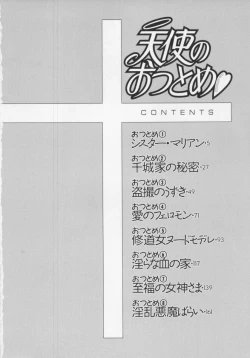 天使の
おつとめ♥
CONTENTS
おつとめ①
シスター・マリアン・5
おつとめ②
千城家の秘密・27
おつとめ③
盗撮のうずき・49
おつとめ④
愛のフェロモン・71
おつとめ⑤
修道女ヌードモデル・93
おつとめ⑥
淫らな血の家・117
おつとめ⑦
至福の女神さま・139
おつとめ⑧
淫乱悪魔ばらい・161